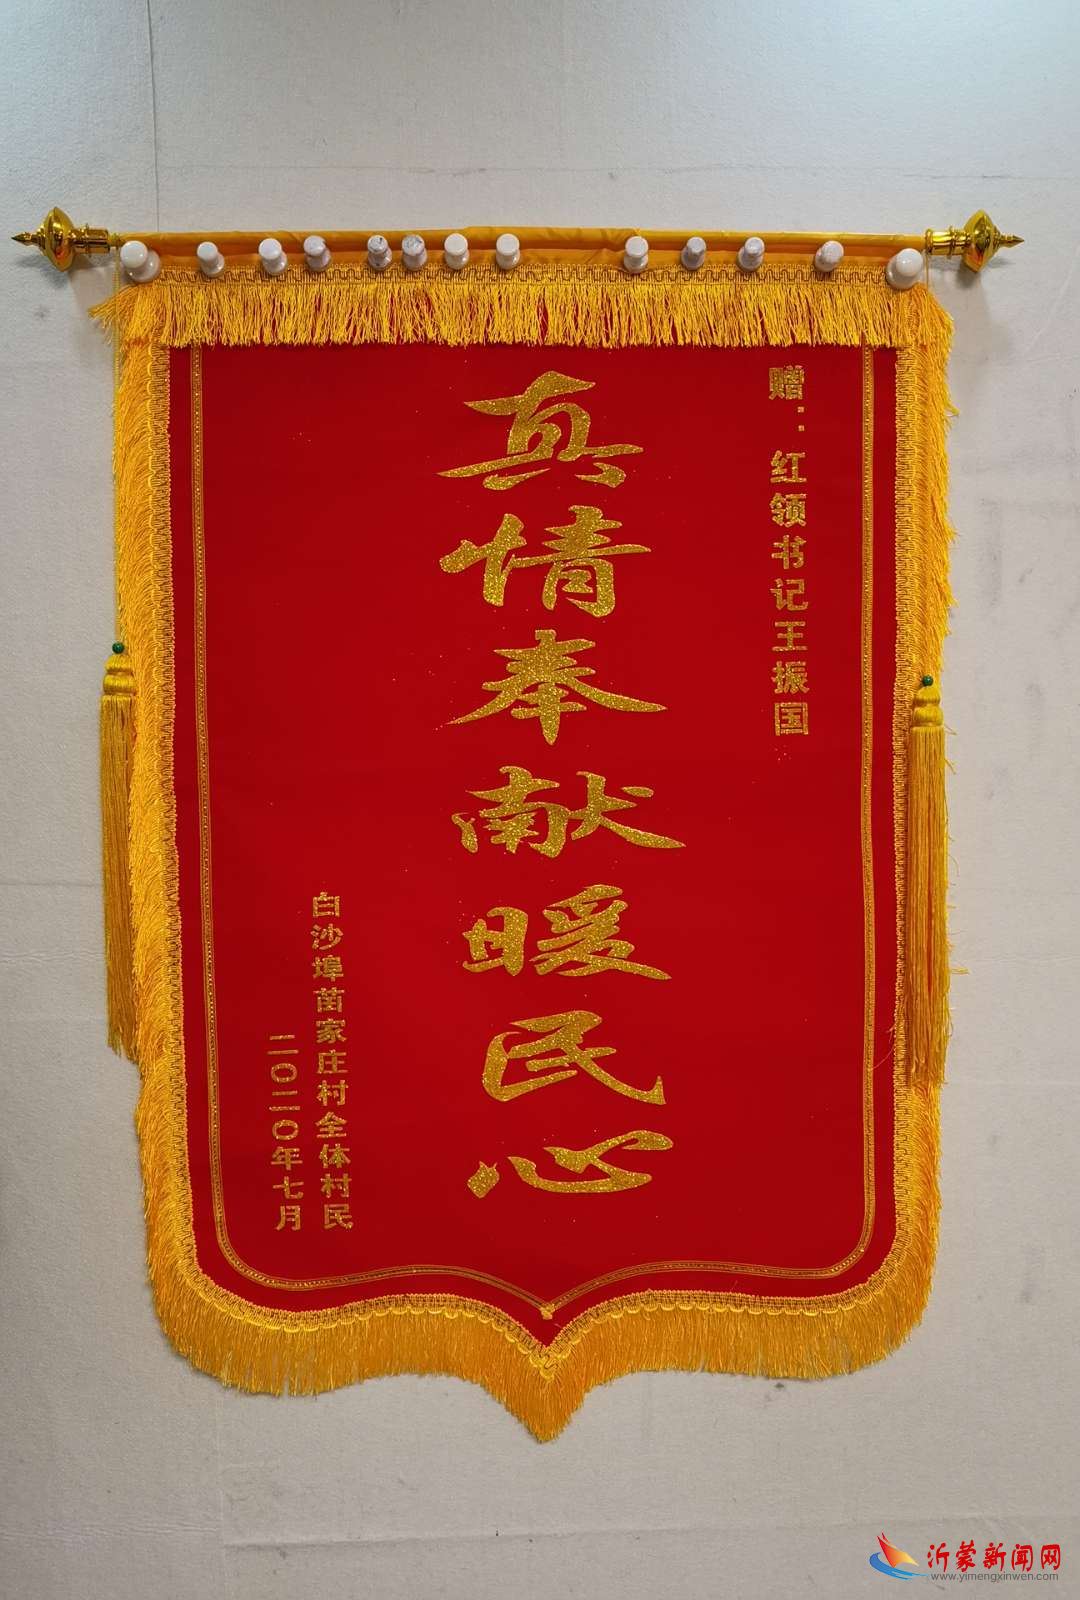 赠：红领书记王振国
真情奉献暖民心
白沙埠茵家庄村全体村民
二〇二〇年七月
沂蒙新闻网
www.yimengxinwen.com